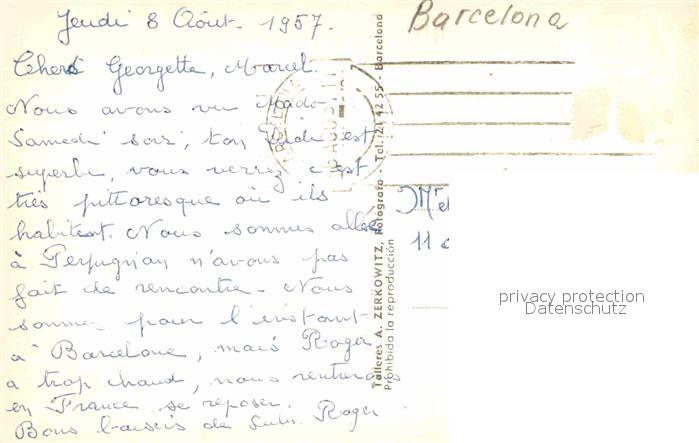 Jeudi 8 Août. 1957.
Chers Georgette, Marcel.
Nous avons vu Mado
Samedi soir, ton est
superbe, vous verrez c'est
très pittoresque où ils
habitent. Nous sommes allés
à Perpignan n'avons pas
fait de rencontre. Nous
sommes pour l'instant
à Barcelone, mais Roger
a trop chaud, nous rentrerons
en France se reposer.
Bons baisers de Roger
Barcelona
Talleres A. ZERKOWITZ, Fotógrafo - Tel. 21 42 55 - Barcelona
Prohibida la reproducción
Mr et
11
privacy protection
Datenschutz